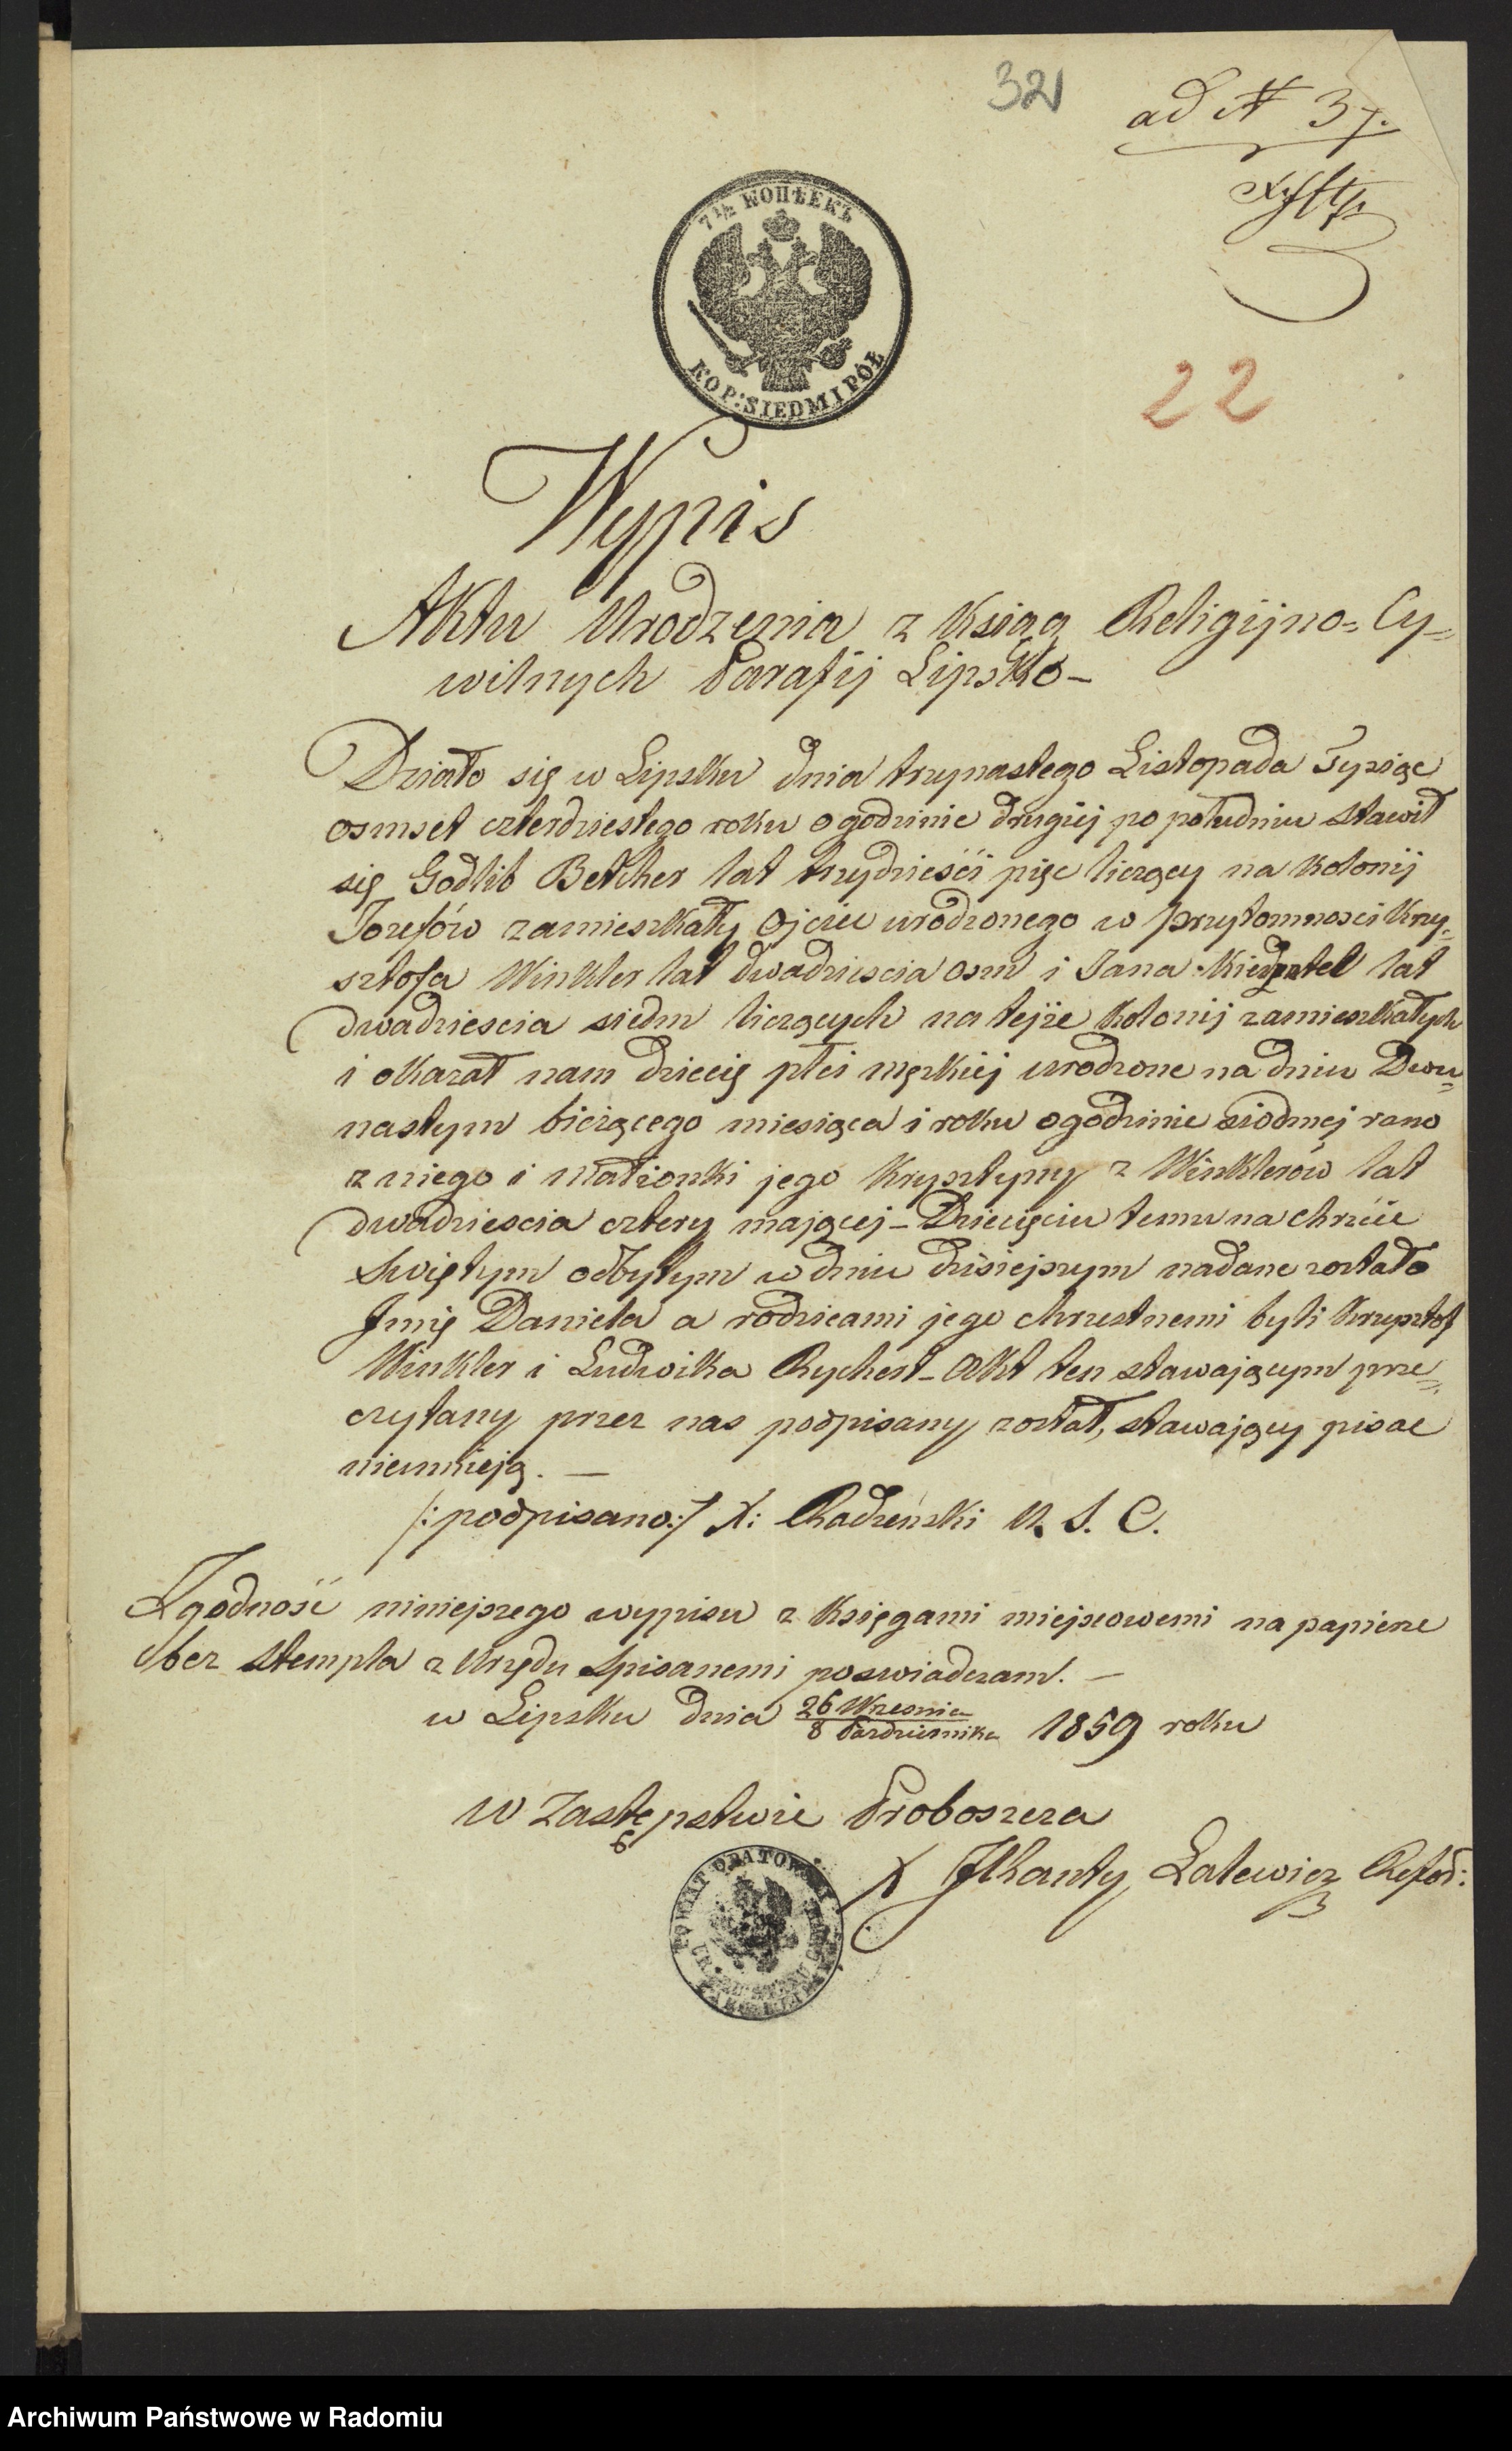 321
ad N 37.
7½ КОПѢЕКЪ
KOP: SIEDM I PÓŁ
22
Wypis
Aktu Urodzenia z Ksiąg Religijno= Cy=
wilnych Parafij Lipsko –
Działo się w Lipsku dnia trzynastego Listopada Tysiąc
osmset czterdziestego roku o godzinie drugiej po południu stawił
się Godlib Betcher lat trzydzieści pięc liczący na kolonij
Jozefów zamieszkały Ojciec urodzonego w przytomnosci Krzy=
sztofa Winkler lat dwadziescia osm i Jana lat
dwadziescia siedm liczących na tejże kolonij zamieszkałych
i okazał nam dziecię płci męzkiej urodzone na dniu Dwu=
nastym bieżącego miesiąca i roku o godzinie siodmej rano
z niego i Małżonki jego Krysztyny z Winklerów lat
dwadziescia cztery mającej – Dziecięciu temu na chrzcie
Swiętym odbytym w dniu dzisiejszym nadane zostało
Jmię Daniela a rodzicami jego chrzestnemi byli Krzysztof
Winkler i Ludwika Rychert – Akt ten stawającym prze=
czytany przez nas podpisany został, stawający pisac
nieumieją. –
/: podpisano :/ X: Radzeński U. S. C.
Zgodność niniejszego wypisu z Księgami miejscowemi na papierze
bez stempla z Urzędu Spisanemi poswiadczam. –
w Lipsku dnia 26 Wrzesnia / 8 Pazdziernika 1859 roku
W Zastępstwie Proboszcza
X JKanty Łatewicz
POWIAT OPATOWSKI
Archiwum Państwowe w Radomiu